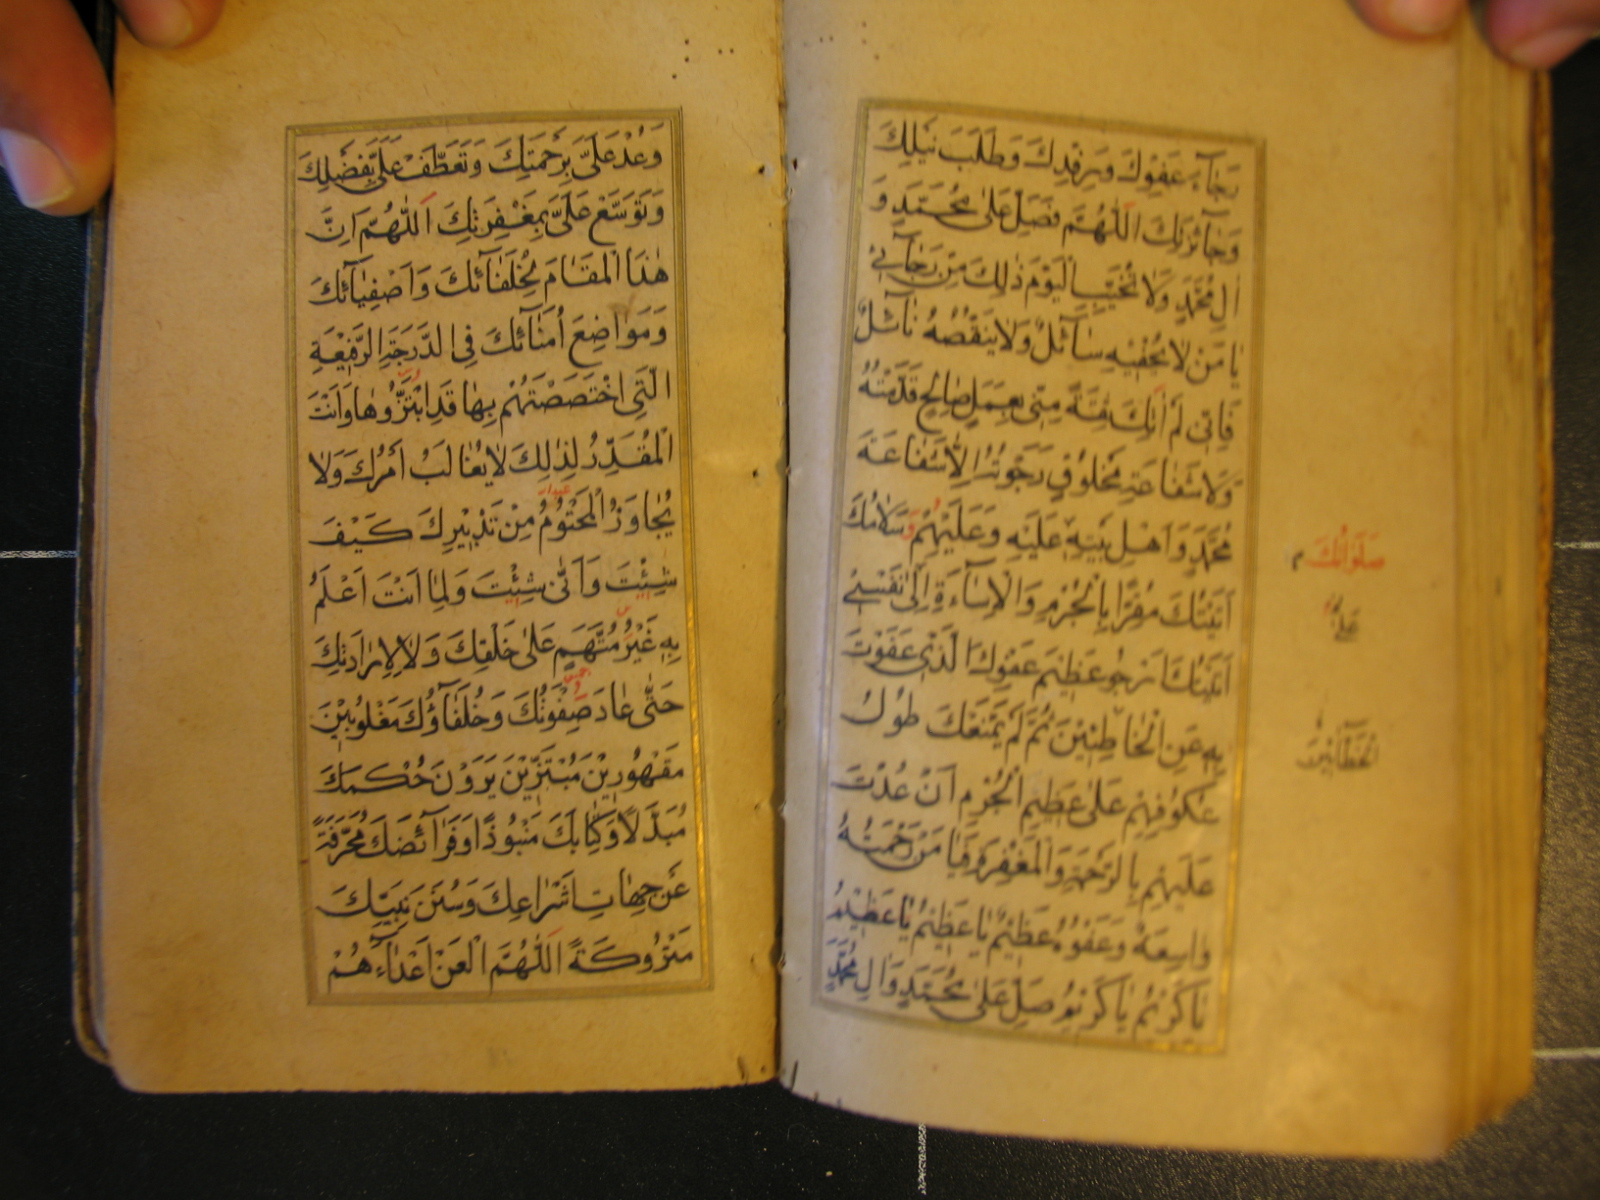 رَجَآءَ عَفْوِكَ وَرِفْدِكَ وَطَلَبَ نَيْلِكَ
وَجَآئِزَتِكَ اَللّٰهُمَّ فَصَلِّ عَلىٰ مُحَمَّدٍ وَ
اٰلِ مُحَمَّدٍ وَلاٰ تُخَيِّبِ الْيَوْمَ ذٰلِكَ مِنْ رَجٰآئى
يٰا مَنْ لاٰ يُحْفيهِ سٰآئِلٌ وَلاٰ يَنْقُصُهُ نٰآئِلٌ
فَاِنّى لَمْ اٰتِكَ ثِقَةً مِنّى بِعَمَلٍ صٰالِحٍ قَدَّمْتُهُ
وَلاٰ شَفٰاعَةِ مَخْلوُقٍ رَجَوْتُهُ اِلاّٰ شَفٰاعَةَ
مُحَمَّدٍ وَاَهْلِ بَيْتِهِ عَلَيْهِ وَعَلَيْهِمْ وَسَلاٰمُكَ
صَلَوٰاتُكَ
اَتَيْتُكَ مُقِرًّا بِالْجُرْمِ وَالْاِسٰآءَةِ اِلىٰ نَفْسى
اَتَيْتُكَ اَرْجُو عَظيمَ عَفْوِكَ الَّذى عَفَوْتَ
بِهِ عَنِ الْخٰاطِئينَ ثُمَّ لَمْ يَمْنَعْكَ طوُلُ
الْخَطّٰآئينَ
عُكوُفِهِمْ عَلىٰ عَظيمِ الْجُرْمِ اَنْ عُدْتَ
عَلَيْهِمْ بِالرَّحْمَةِ وَالْمَغْفِرَةِ فَيٰا مَنْ رَحْمَتُهُ
وٰاسِعَةٌ وَعَفْوُهُ عَظيمٌ يٰا عَظيمُ يٰا عَظيمُ
يٰا كَريمُ يٰا كَريمُ صَلِّ عَلىٰ مُحَمَّدٍ وَاٰلِ مُحَمَّدٍ
وَعُدْ عَلَىَّ بِرَحْمَتِكَ وَتَعَطَّفْ عَلَىَّ بِفَضْلِكَ
وَتَوَسَّعْ عَلَىَّ بِمَغْفِرَتِكَ اَللّٰهُمَّ اِنَّ
هٰذَا الْمَقٰامَ لِخُلَفٰآئِكَ وَاَصْفِيٰآئِكَ
وَمَوٰاضِعَ اُمَنٰآئِكَ فِى الدَّرَجَةِ الرَّفيعَةِ
الَّتِى اخْتَصَصْتَهُمْ بِهٰا قَدِ ابْتَزُّوهٰا وَاَنْتَ
الْمُقَدِّرُ لِذٰلِكَ لاٰ يُغٰالَبُ اَمْرُكَ وَلاٰ
يُجٰاوَزُ الْمَحْتوُمُ مِنْ تَدْبيرِكَ كَيْفَ
شِئْتَ وَاَنّىٰ شِئْتَ وَلِمٰا اَنْتَ اَعْلَمُ
بِهِ غَيْرُ مُتَّهَمٍ عَلىٰ خَلْقِكَ وَلاٰ لِاِرٰادَتِكَ
حَتّىٰ عٰادَ صِفْوَتُكَ وَخُلَفٰآؤُكَ مَغْلوُبينَ
مَقْهوُرينَ مُبْتَزّينَ يَرَوْنَ حُكْمَكَ
مُبَدَّلاً وَكِتٰابَكَ مَنْبوُذًا وَفَرٰآئِضَكَ مُحَرَّفَةً
عَنْ جِهٰاتِ اَشْرٰاعِكَ وَسُنَنَ نَبِيِّكَ
مَتْروُكَةً اَللّٰهُمَّ الْعَنْ اَعْدٰآءَهُمْ